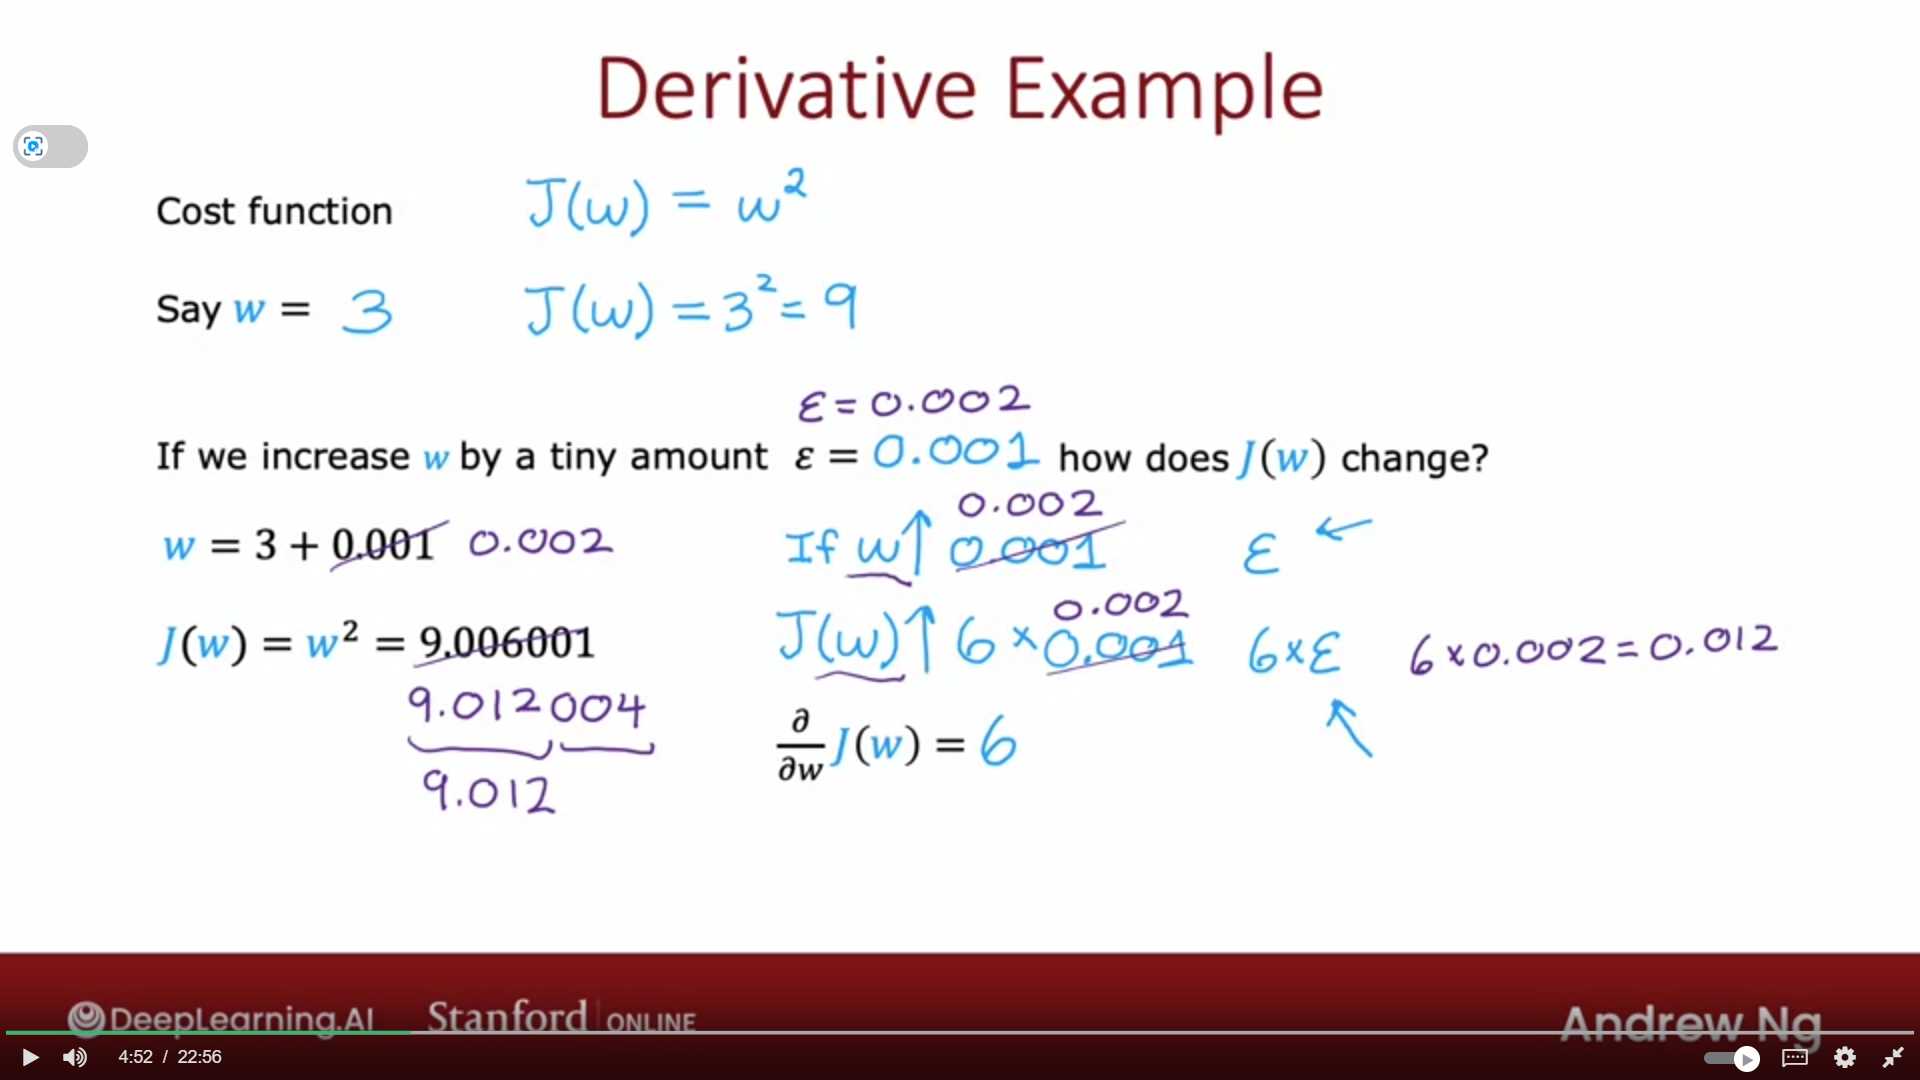 Derivative Example
Cost function J(w) = w²
Say w = 3 J(w) = 3² = 9
ε = 0.002
If we increase w by a tiny amount ε = 0.001 how does J(w) change?
0.002
w = 3 + 0.001 0.002 If w↑ 0.001 ε ←
0.002
J(w) = w² = 9.006001 J(w)↑ 6 × 0.001 6×ε 6×0.002=0.012
9.012004
∂/∂w J(w) = 6
9.012
DeepLearning.AI Stanford ONLINE Andrew Ng
4:52 / 22:56